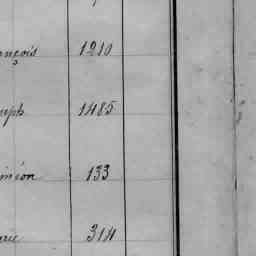 ançois 1210
seph 1485
iméon 133
arie 314